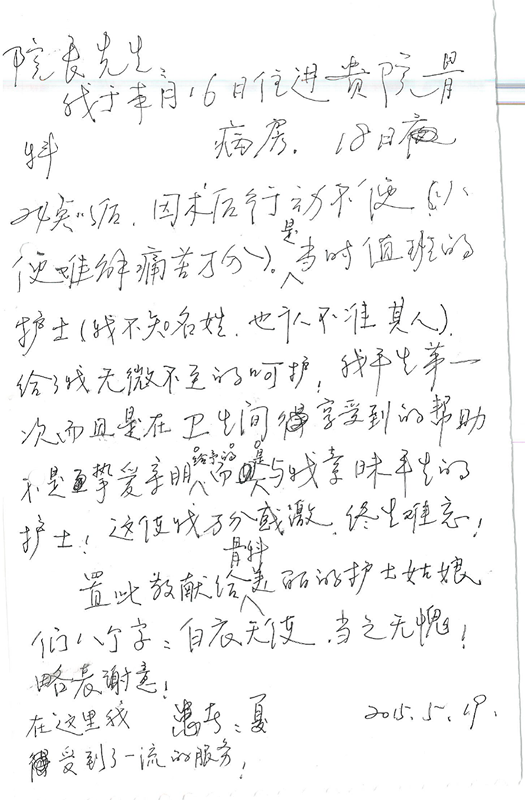 院长先生:
我于本月16日住进贵院骨
科 病房. 18日夜
24点以后, 因术后行动不便(小
便难解痛苦万分)。是当时值班的
护士(我不知名姓.也认不准真人).
给了我无微不至的呵护!我平生第一
次而且是在卫生间享受到的帮助
不是挚爱亲朋给予的而是与我素昧平生的
护士!这使我万分感激.终生难忘!
置此敬献给骨科美丽的护士姑娘
们八个字:白衣天使.当之无愧!
略表谢意!
在这里我 患者:夏 2015.5.19.
受到了一流的服务!